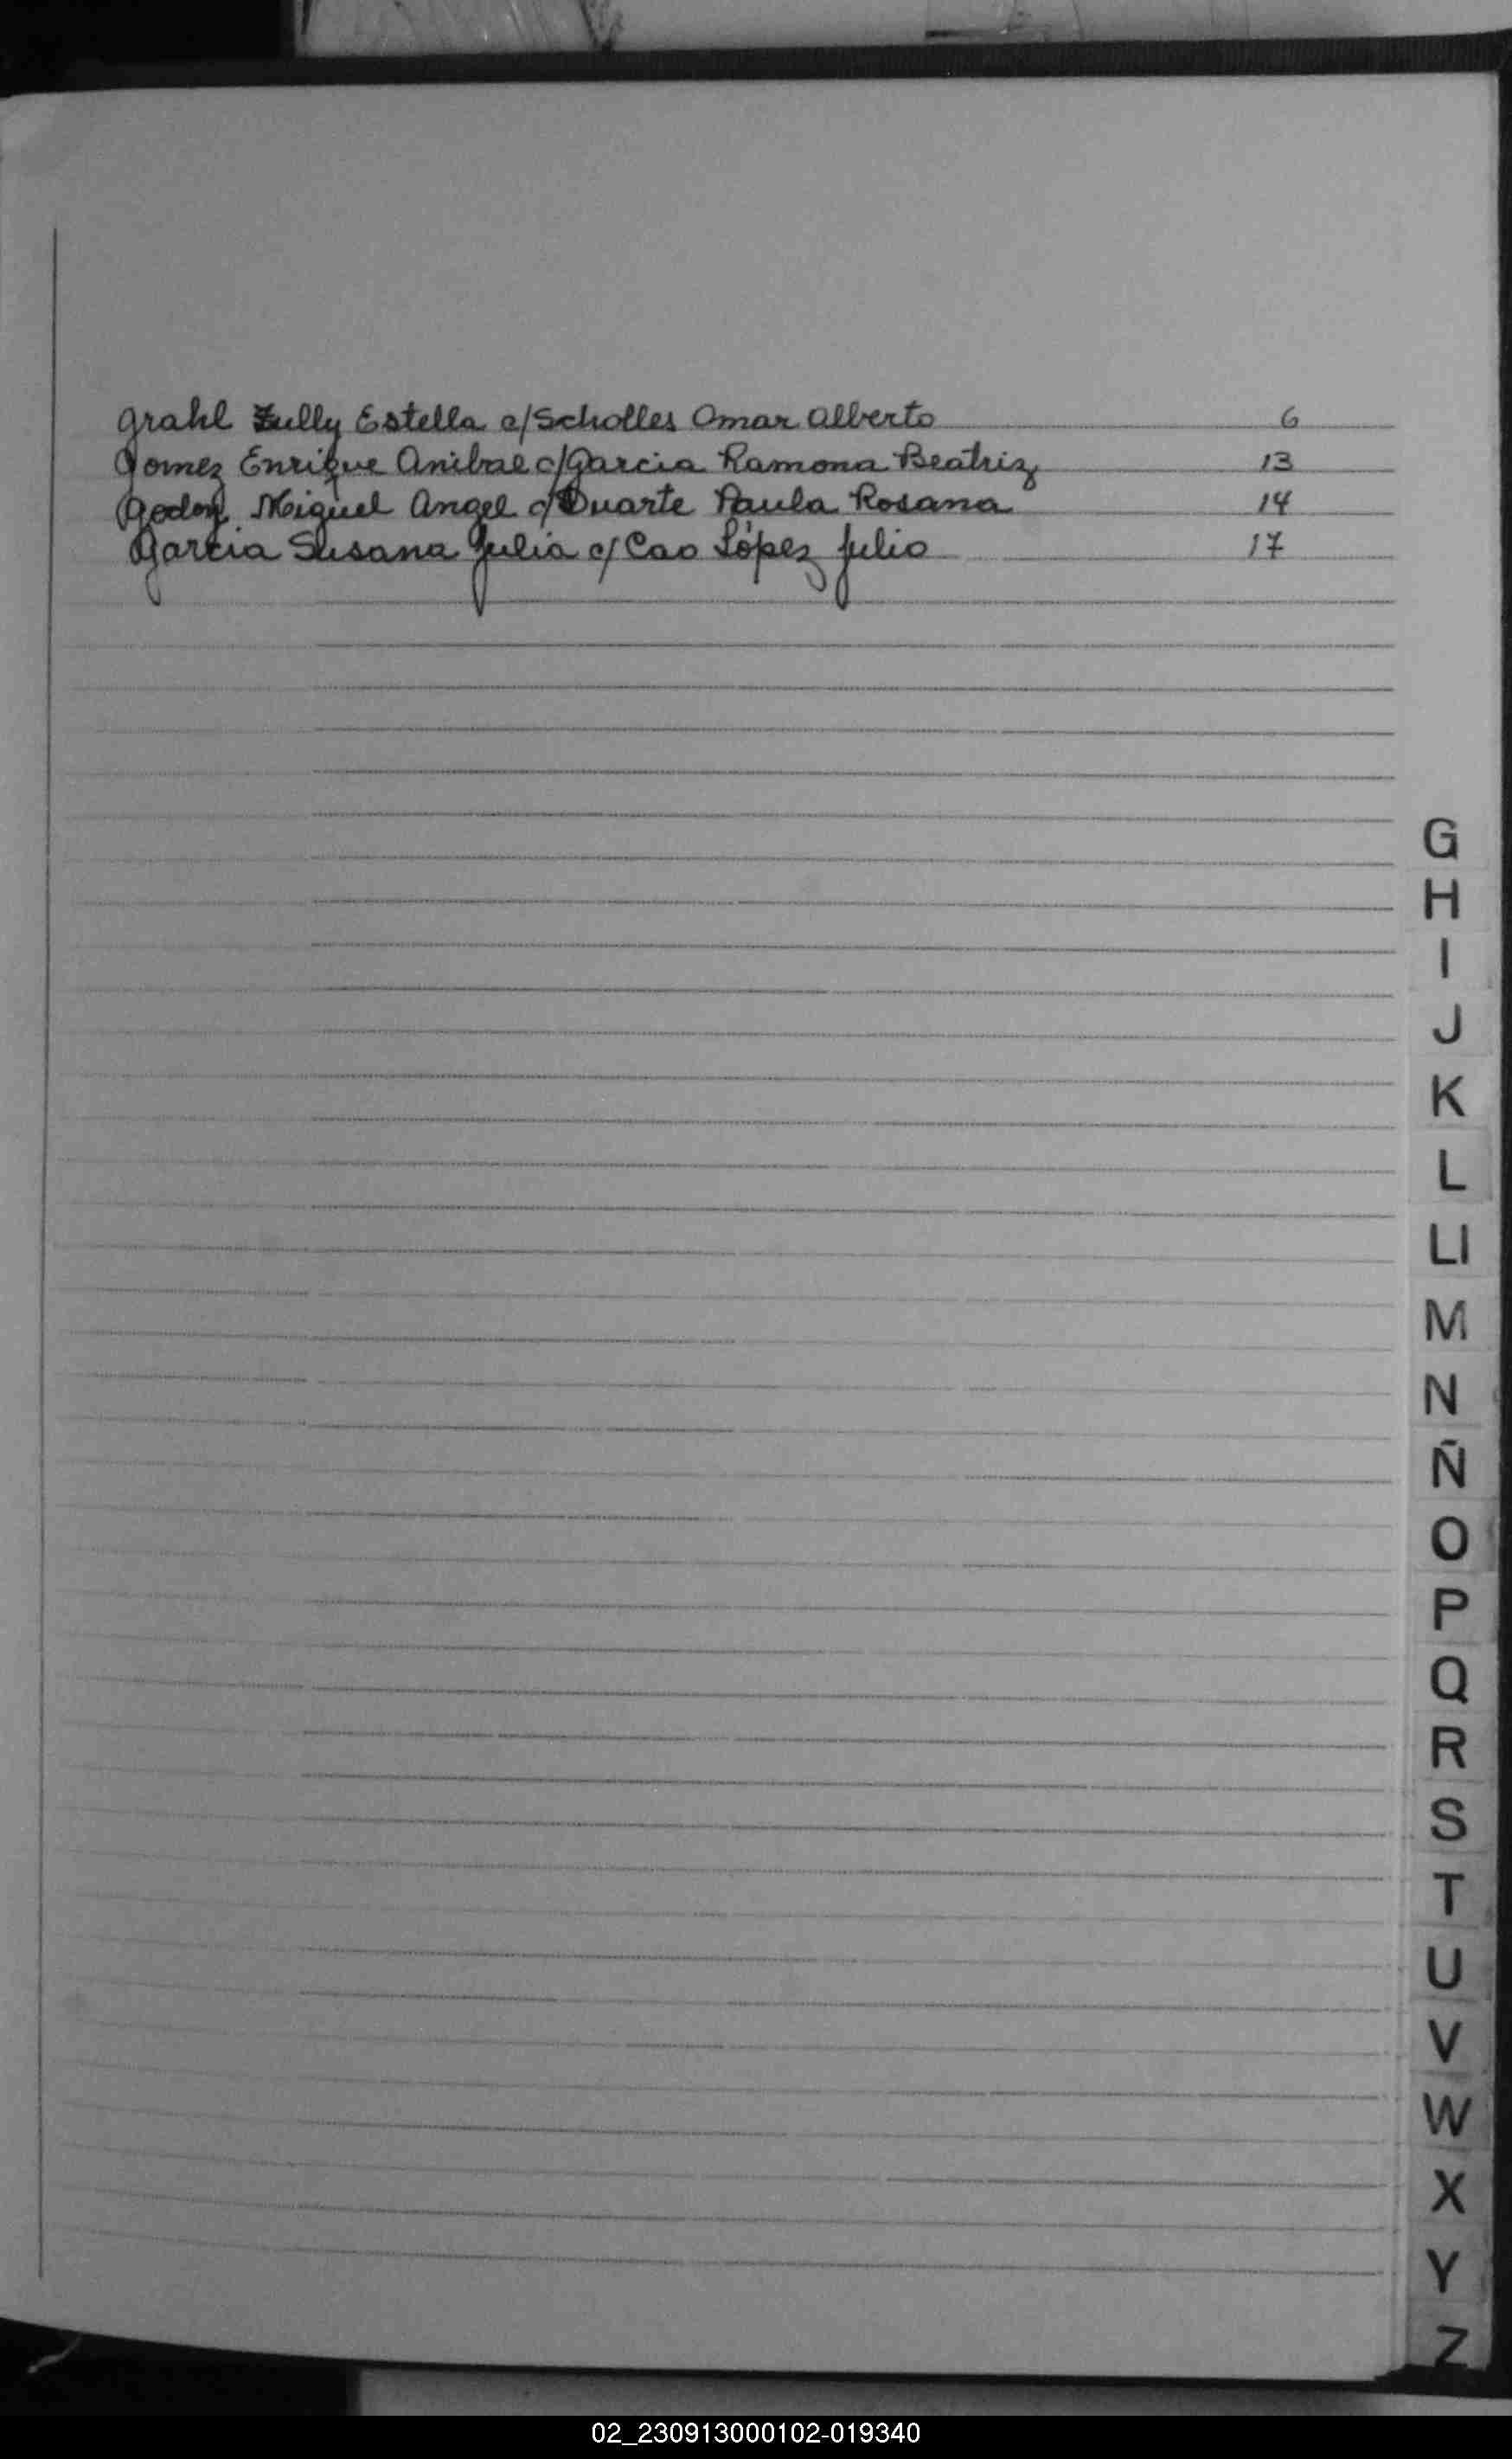 Grahl Zully Estella c/Scholles Omar Alberto 6
Gomez Enrique Anibal c/Garcia Ramona Beatriz 13
Godoy Miguel Angel c/Duarte Paula Rosana 14
Garcia Susana Julia c/ Cao López Julio 17
G
H
I
J
K
L
Ll
M
N
Ñ
O
P
Q
R
S
T
U
V
W
X
Y
Z
02_230913000102-019340